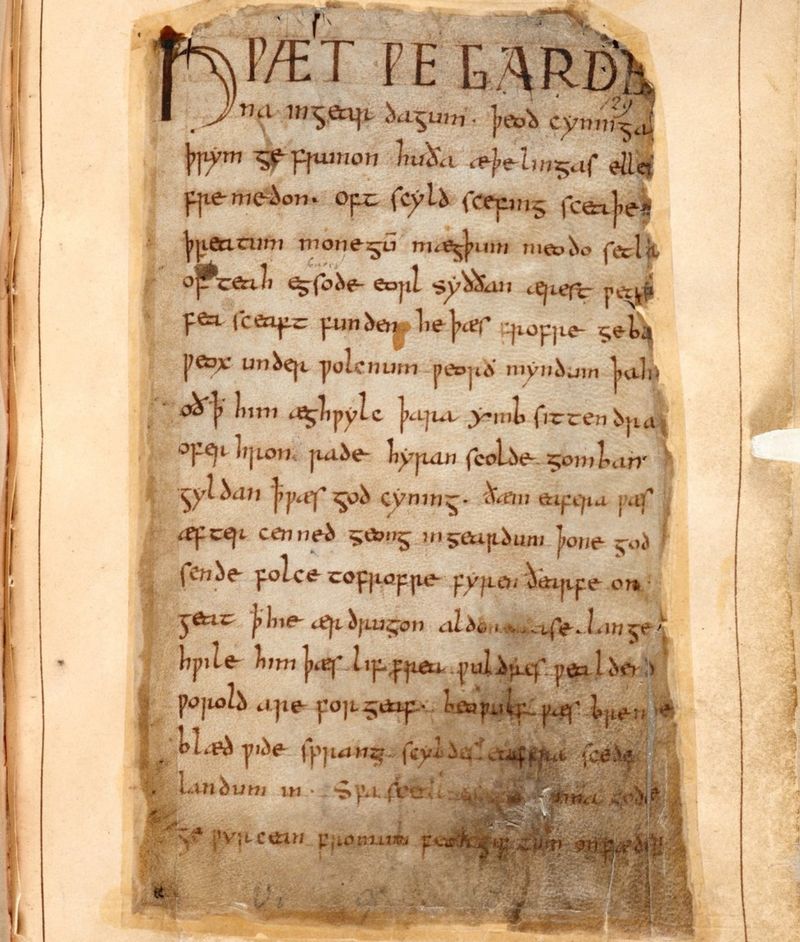 HǷÆT ǷE GARDE
na ingear dagum. þeod cyninga
þrym ge frunon huða æþelingas elle
fremedon. oft scyld scefing sceaþe
þreatum monegū mægþum meodo setla
of teah egsode eorl syððan ærest ƿear
fea sceaft funden he þæs frofre geba
ƿeox under ƿolcnum ƿeorð myndum þah
oð ꝥ him æghƿylc þara ymb sittendra
ofer hron rade hyran scolde gomban
gyldan ꝥ ƿæs god cyning. ðæm eafera ƿæs
æfter cenned geong in geardum þone god
sende folce tofrofre fyren ðearfe on
geat ꝥ hie ær drugon aldor ase. lange
hƿile him þæs lif frea ƿuldres ƿealdend
ƿorold are for geaf. beoƿulf ƿæs breme
blæd ƿide sprang scyldes eafera scede
landum in. Sƿa sceal ma gode
ge ƿyrcean fromum feoh giftum on fæder
129